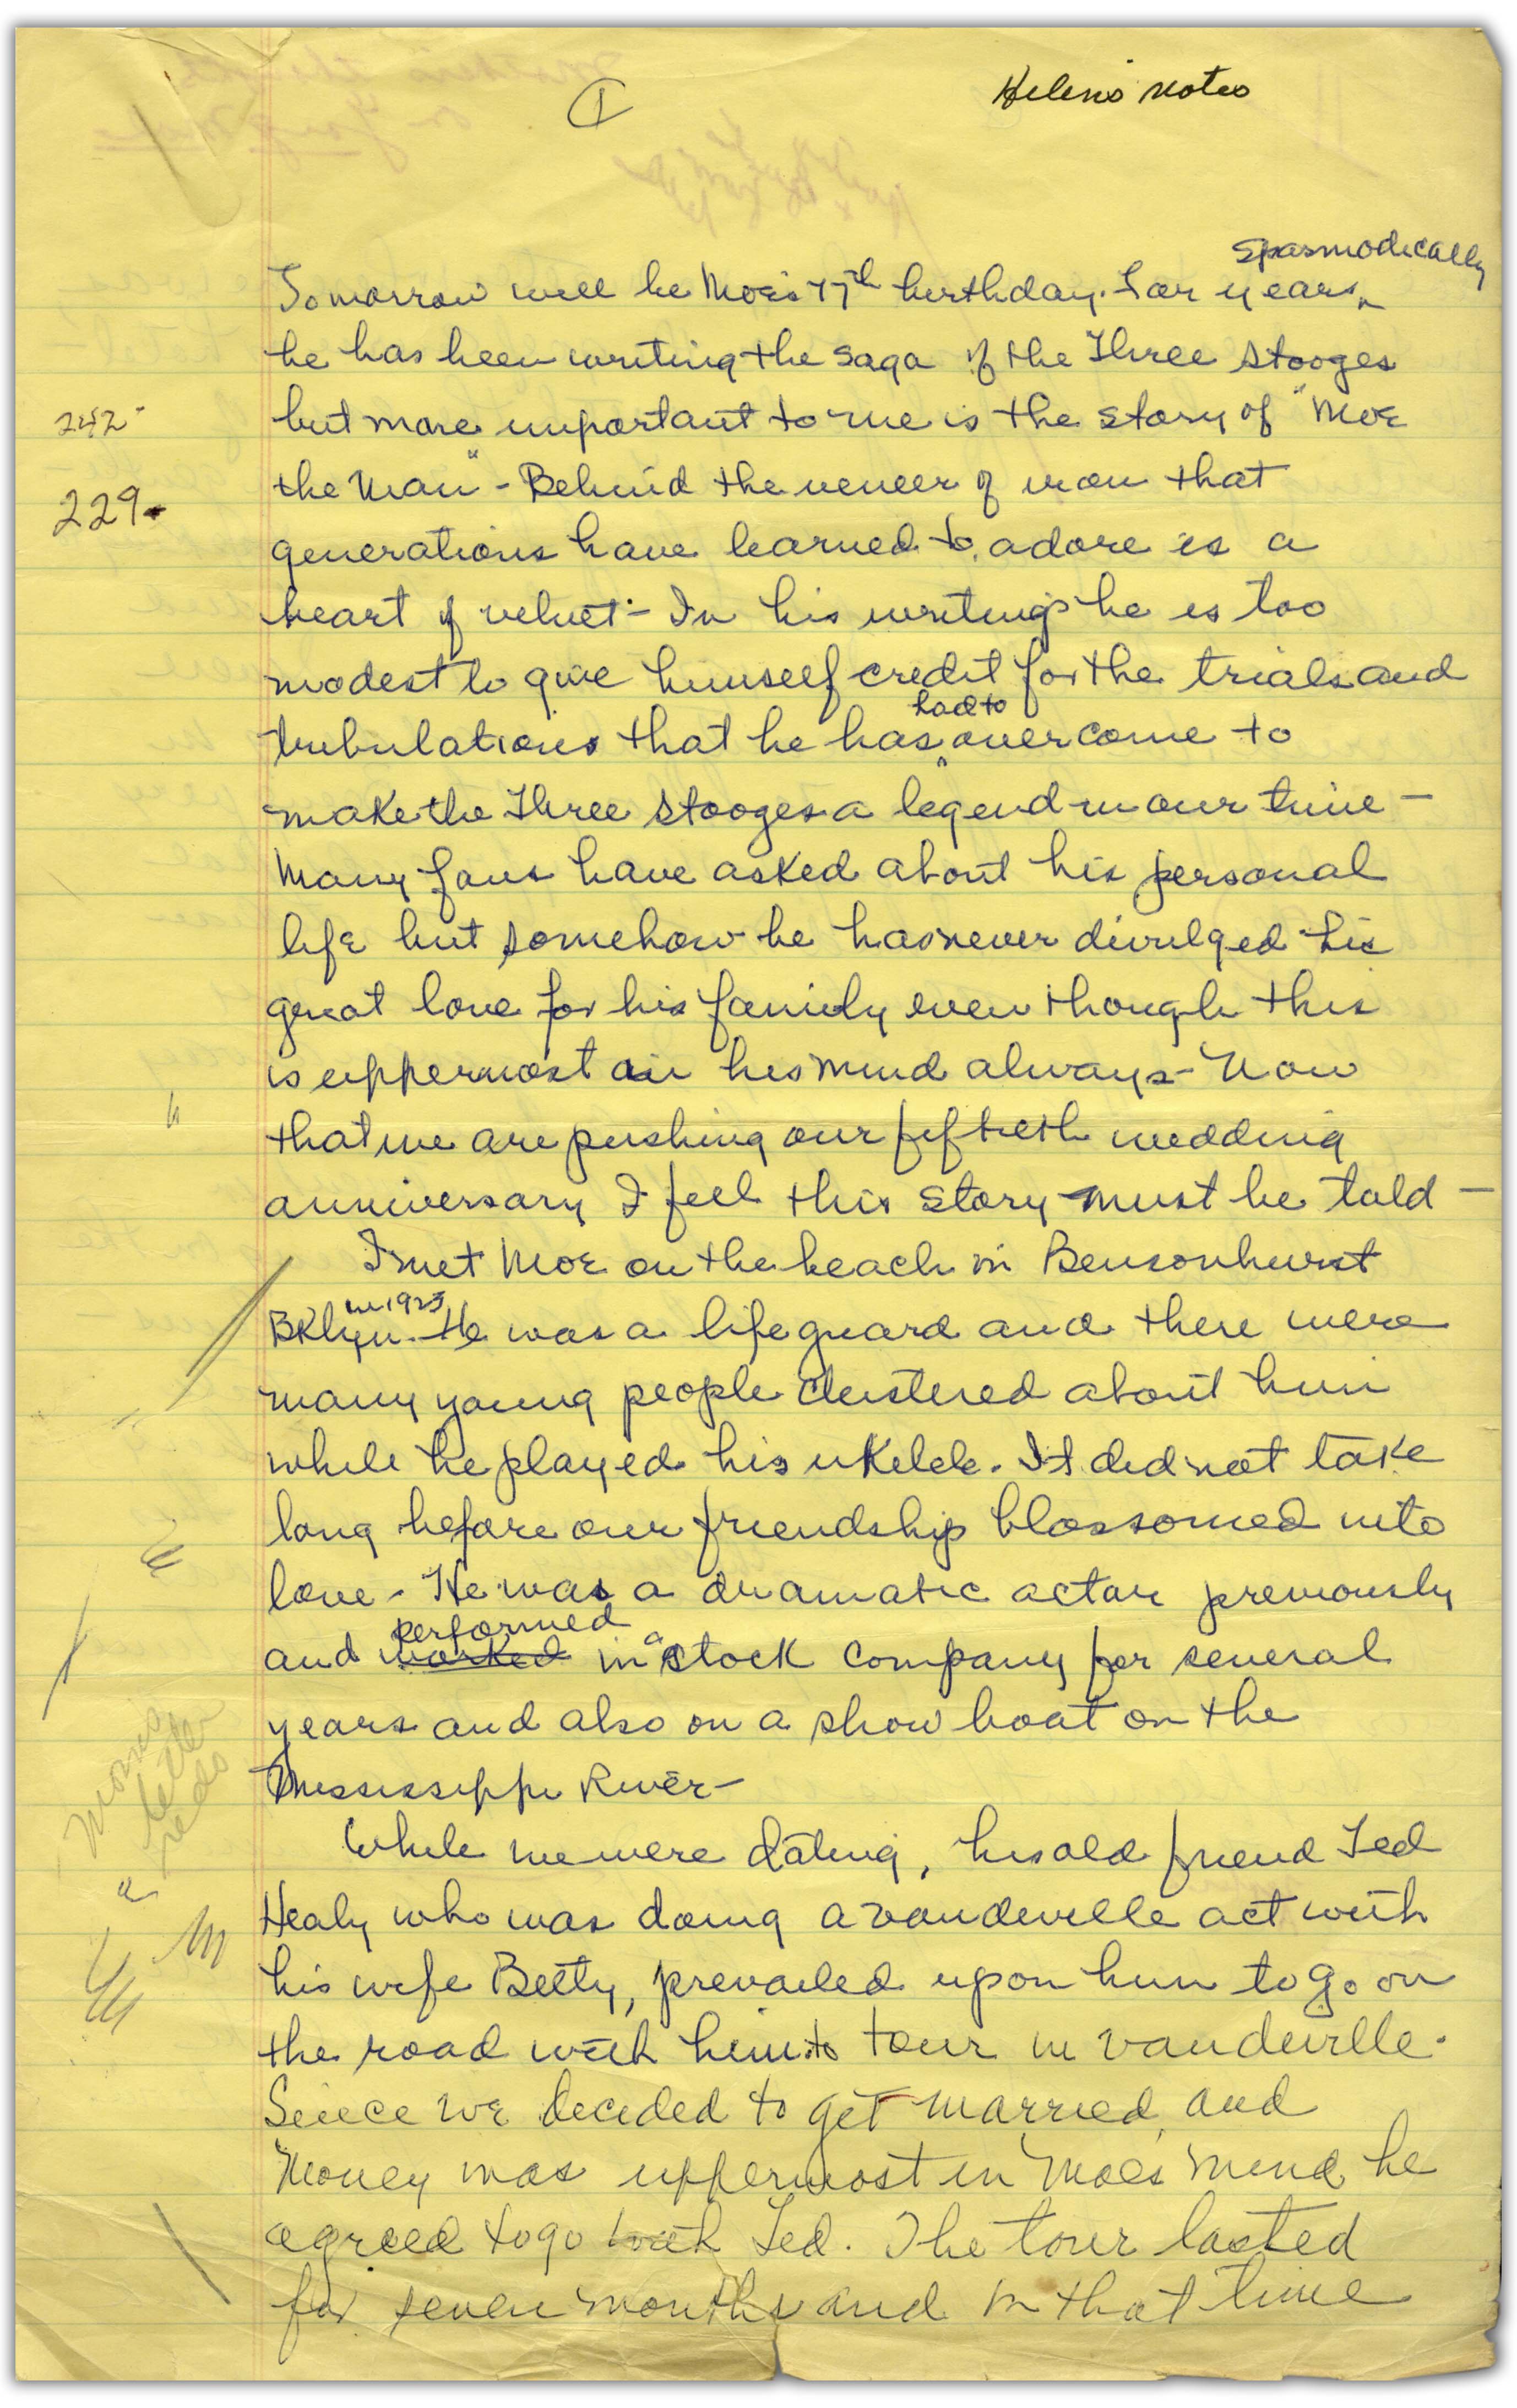 1
Helen's notes
Spasmodically
Tomorrow will be Moe's 77th birthday. For years
he has been writing the saga of the Three Stooges
242-
but more important to me is the story of "Moe
the Man" - Behind the veneer of iron that
229-
generations have learned to adore is a
heart of velvet - In his writings he is too
modest to give himself credit for the trials and
had to
tribulations that he has overcome to
make the Three Stooges a legend in our time -
Many fans have asked about his personal
life but somehow he has never divulged his
great love for his family even though this
is uppermost in his mind always - Now
that we are pushing our fiftieth wedding
anniversary I feel this story must be told -
I met Moe on the beach in Bensonhurst
in 1923
Bklyn. He was a lifeguard and there were
many young people clustered about him
while he played his ukelele. It did not take
long before our friendship blossomed into
love - He was a dramatic actor previously
performed
and worked in a stock company for several
years and also on a show boat on the
Mississippi River -
While we were dating, his old friend Ted
Healy who was doing a vaudeville act with
his wife Betty, prevailed upon him to go on
the road with him to tour in vaudeville.
Since we decided to get married, and
Money was uppermost in Moe's mind, he
agreed to go with Ted. The tour lasted
for seven months and in that time